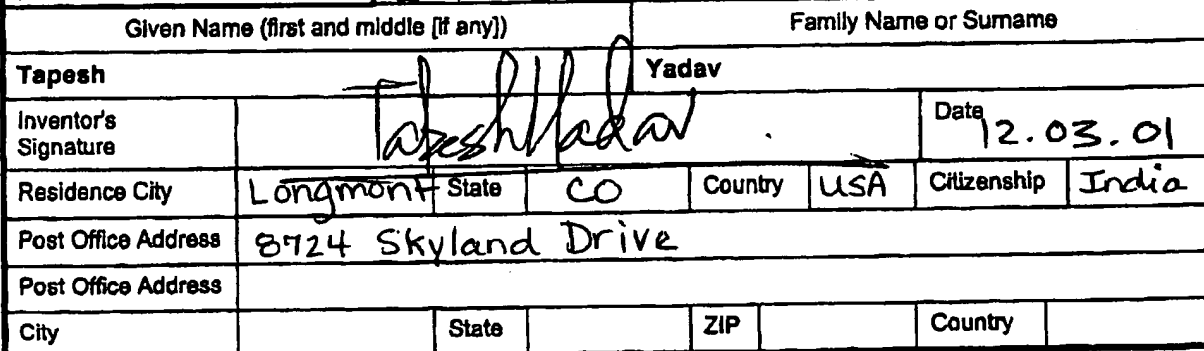 Given Name (first and middle [if any]) Family Name or Surname
Tapesh Yadav
Inventor's Signature Tapesh Yadav Date 12.03.01
Residence City Longmont State CO Country USA Citizenship India
Post Office Address 8724 Skyland Drive
Post Office Address
City State ZIP Country